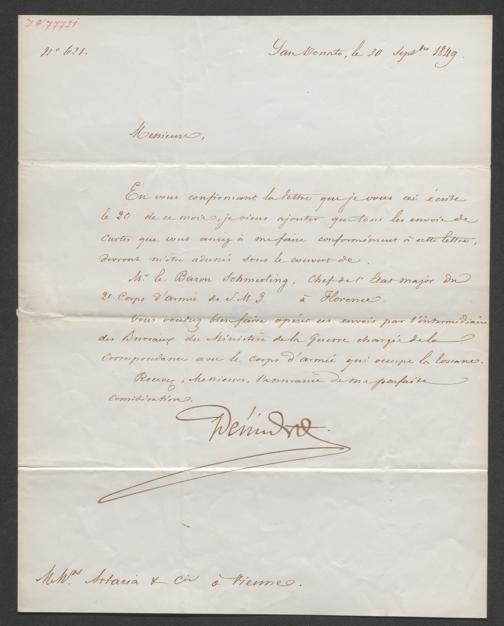 N° 621.
San Donato, le 30 Septbre 1849.
Messieurs,
En vous confirmant la lettre que je vous ai écrite
le 20 de ce mois, je viens ajouter que tous les envois de
cartes que vous aurez à me faire conformément à cette lettre,
devront m'être adressés sous le couvert de
Mr. le Baron Schmerling, Chef de l'Etat major du
2e Corps d'armée de S. M. J à Florence.
Vous voudrez bien faire opérer ces envois par l'intermédiaire
des Bureaux du Ministère de la Guerre chargés de la
Correspondance avec le Corps d'armée qui occupe la Toscane.
Recevez, Messieurs, l'assurance de ma parfaite
considération.
MMrs Artaria & Cie à Vienne.